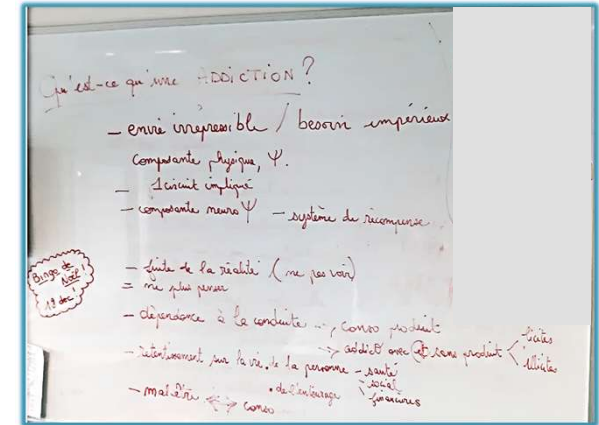 Qu'est-ce qu'une ADDICTION ?
- envie irrépressible / besoin impérieux
composante physique, Ψ.
- 1 circuit impliqué
- composante neuro Ψ - système de récompense
- fuite de la réalité (ne pas voir)
= ne plus penser
Bingo de
Noël !
19 déc !
- dépendance à la conduite → conso produit
→ addict avec et sans produit < licites
illicites
- retentissement sur la vie • de la personne - santé
social
financières
• de l'entourage
- mal être ↔ conso